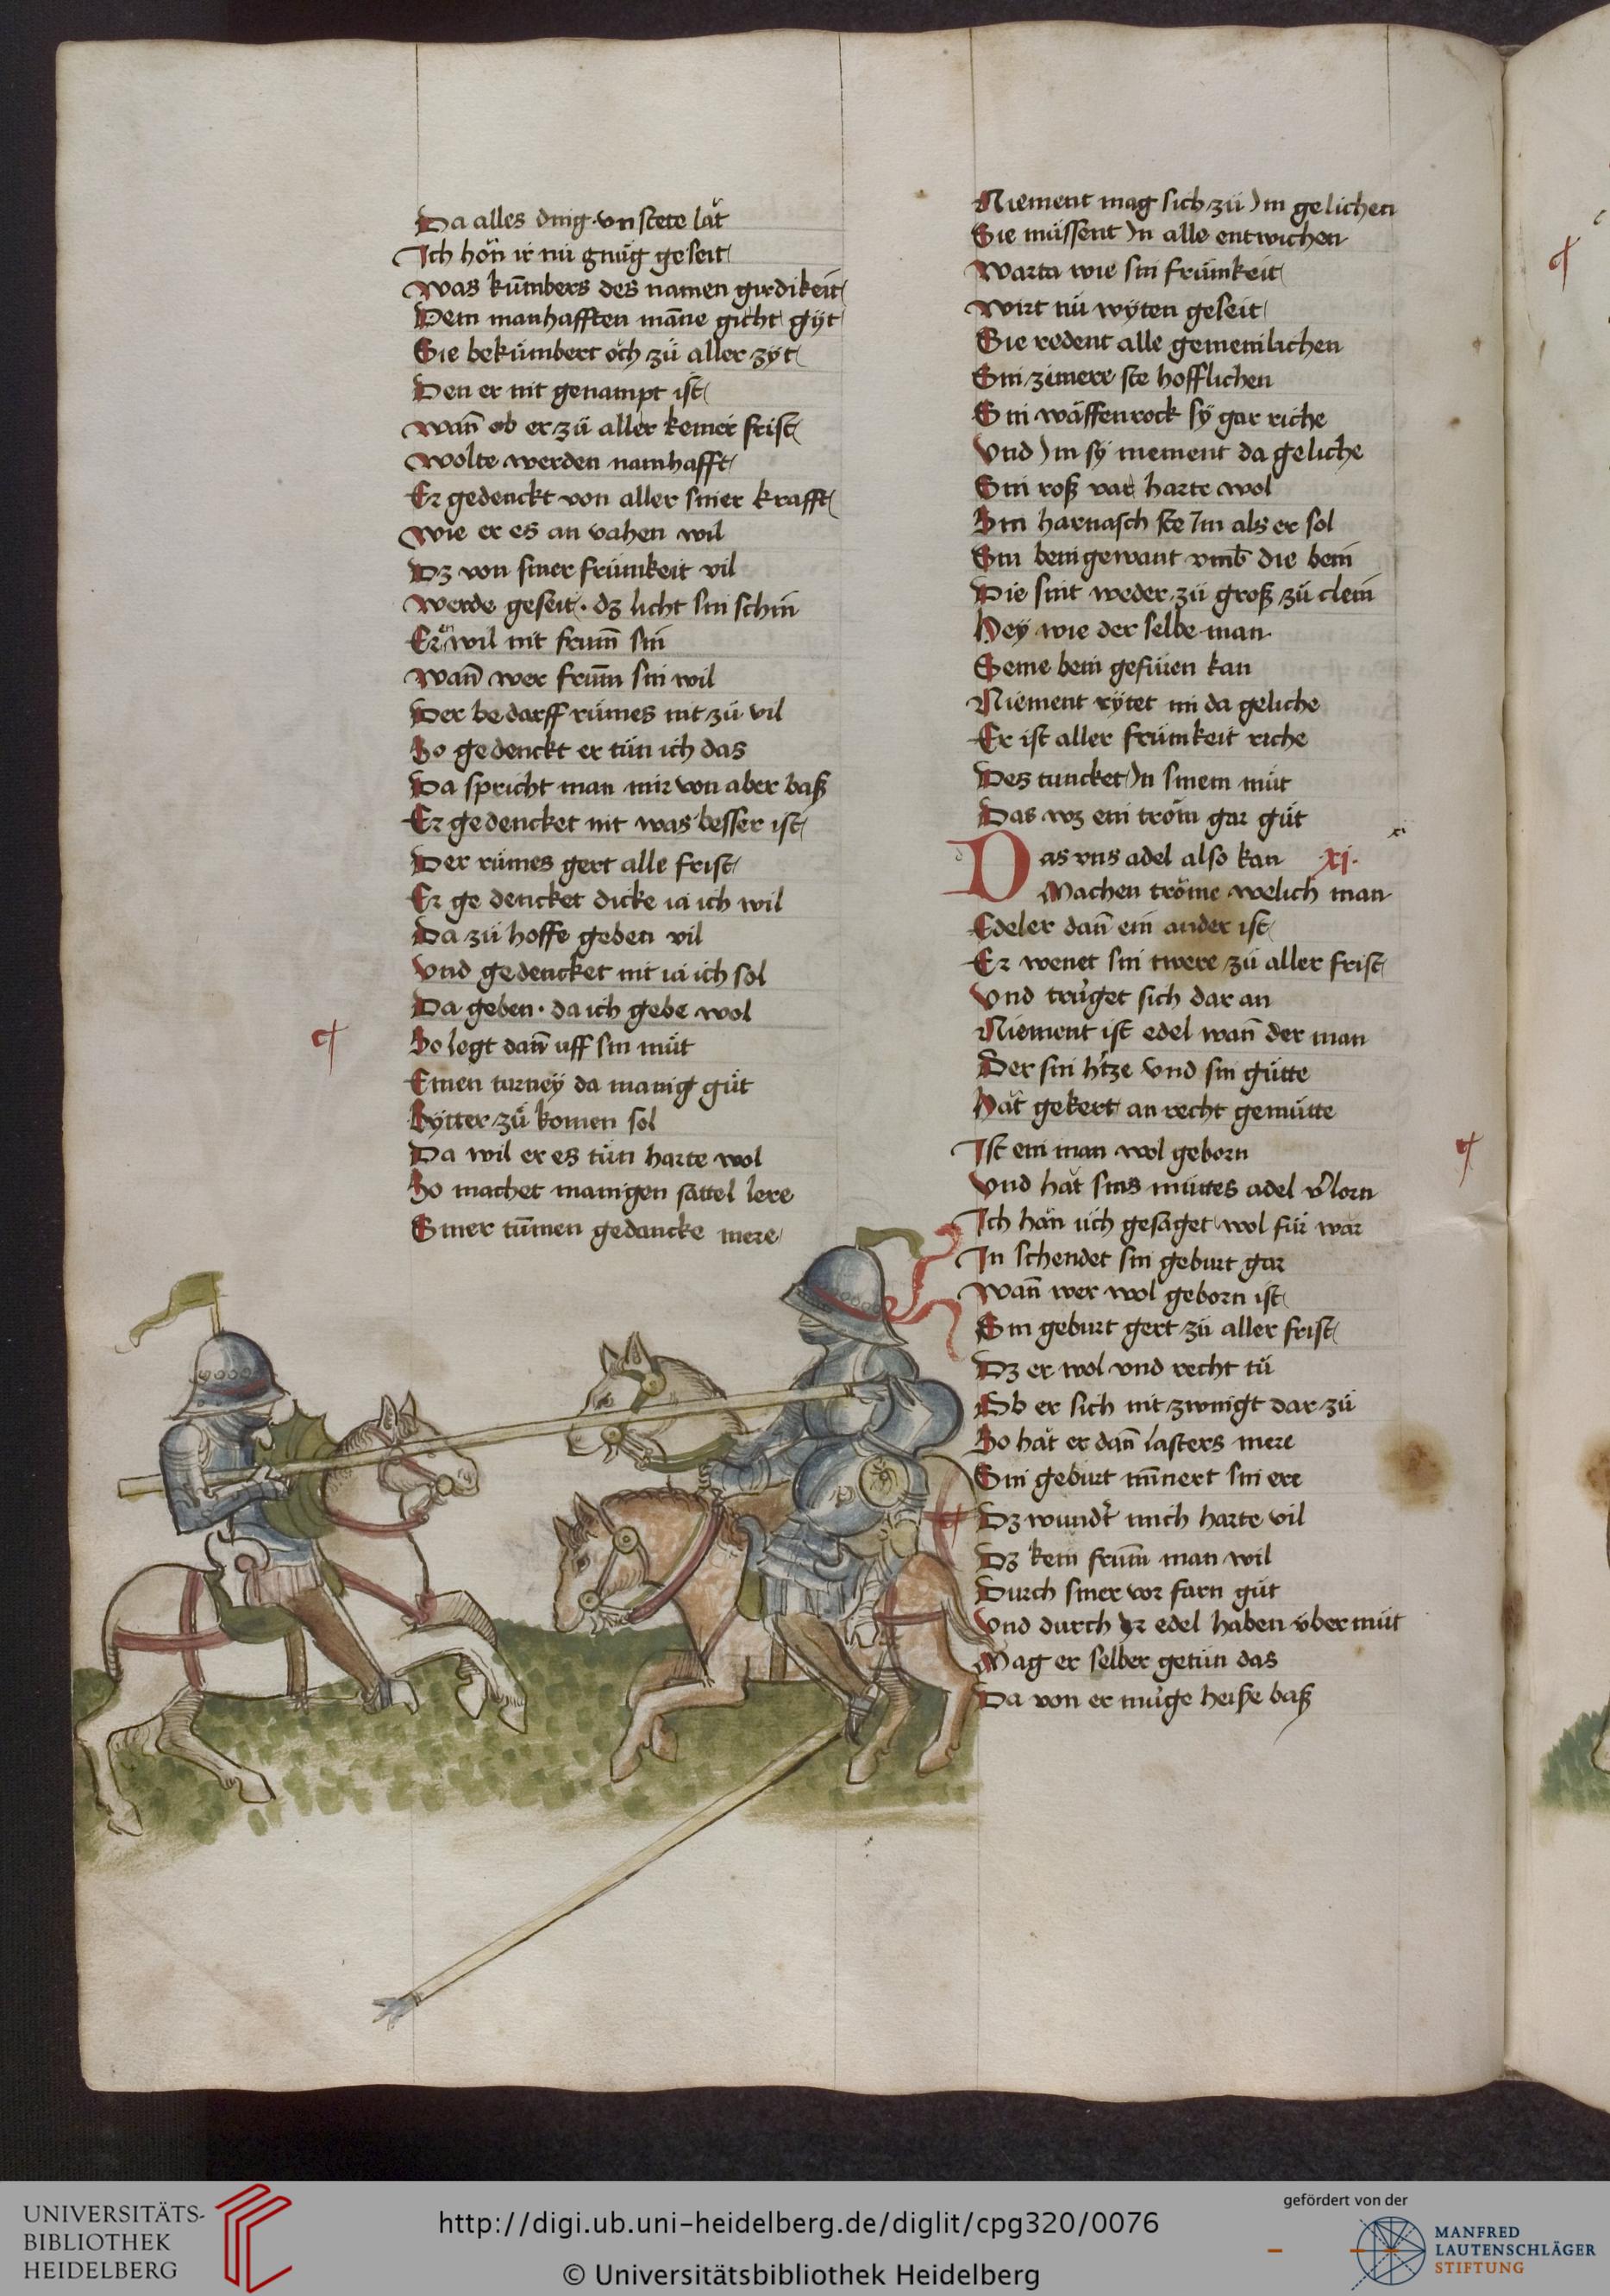 Da alles ding vnstete lăt
Ich hőn ir nu gnůg geseit
was kūmbers des namen girdikeit
Dem manhafften māne gicht gyt
Sie bekúmbert ǒch zů aller zÿt
Den er nit genampt ist
wañ ob er zů aller keiner frist
wolte werden namhafft
Er gedenckt von aller siner krafft
wie er es an vahen wil
Dz von siner frúmkeit vil
werde geseit · dz licht sin schin
Er wil nit frum̄ sin
wañ wer frum̄ sin wil
Der bedarff růmes nit zů vil
So gedenckt er tůn ich das
Da spricht man mir von aber baß
Er gedencket nit was besser ist
Der růmes gert alle frist
Er gedencket dicke ia ich wil
Da zů hoffe geben vil
Vnd gedencket nit ia ich sol
Da geben · da ich gebe wol
So legt dañ uff sin můt
Einen turneÿ da manig gůt
Rÿtter zů komen sol
Da wil er es tůn harte wol
So machet manigen sattel lere
Siner tūmen gedancke mere
Niement mag sich zů Im gelichen
Sie můssent In alle entwichen
warta wie sin frúmkeit
wirt nů wyten geseit
Sie redent alle gemeinlichen
Sin zimere ste hofflichen
Sin wǎffenrock sÿ gar riche
Vnd Im sÿ niement da geliche
Sin roß var harte wol
Sin harnasch ste Im als er sol
Sin beingewant vmb die bein
Die sint weder zů groß zů clein
Heÿ wie der selbe man
Seine bein gefůren kan
Niement rÿtet im da geliche
Er ist aller frúmkeit riche
Des tuncket In sinem můt
Das wz ein trǒm gar gůt
Das vns adel also kan ·xi·
Machen trǒme welich man
Edeler dañ ein ander ist
Er wenet sin twere zů aller frist
Vnd trúget sich dar an
Niement ist edel wañ der man
Der sin h'tze vnd sin gůtte
Hăt gekert an recht gemůtte
Ist ein man wol geborn
Vnd hăt sins můttes adel v'lorn
Ich hăn úch gesaget wol fúr wăr
In schendet sin geburt gar
wañ wer wol geborn ist
Sin geburt gert zů aller frist
Dz er wol vnd recht tů
Ob er sich nit zwingt dar zů
So hăt er dañ lasters mere
Sin geburt mīnert sin ere
Dz wund't mich harte vil
Dz kein frum̄ man wil
Durch siner vorfarn gůt
Vnd durch Ir edel haben úbermůt
Mag er selber getůn das
Da von er múge heiße baß
UNIVERSITÄTS-
BIBLIOTHEK
HEIDELBERG
http://digi.ub.uni-heidelberg.de/diglit/cpg320/0076
© Universitätsbibliothek Heidelberg
gefördert von der
MANFRED
LAUTENSCHLÄGER
STIFTUNG